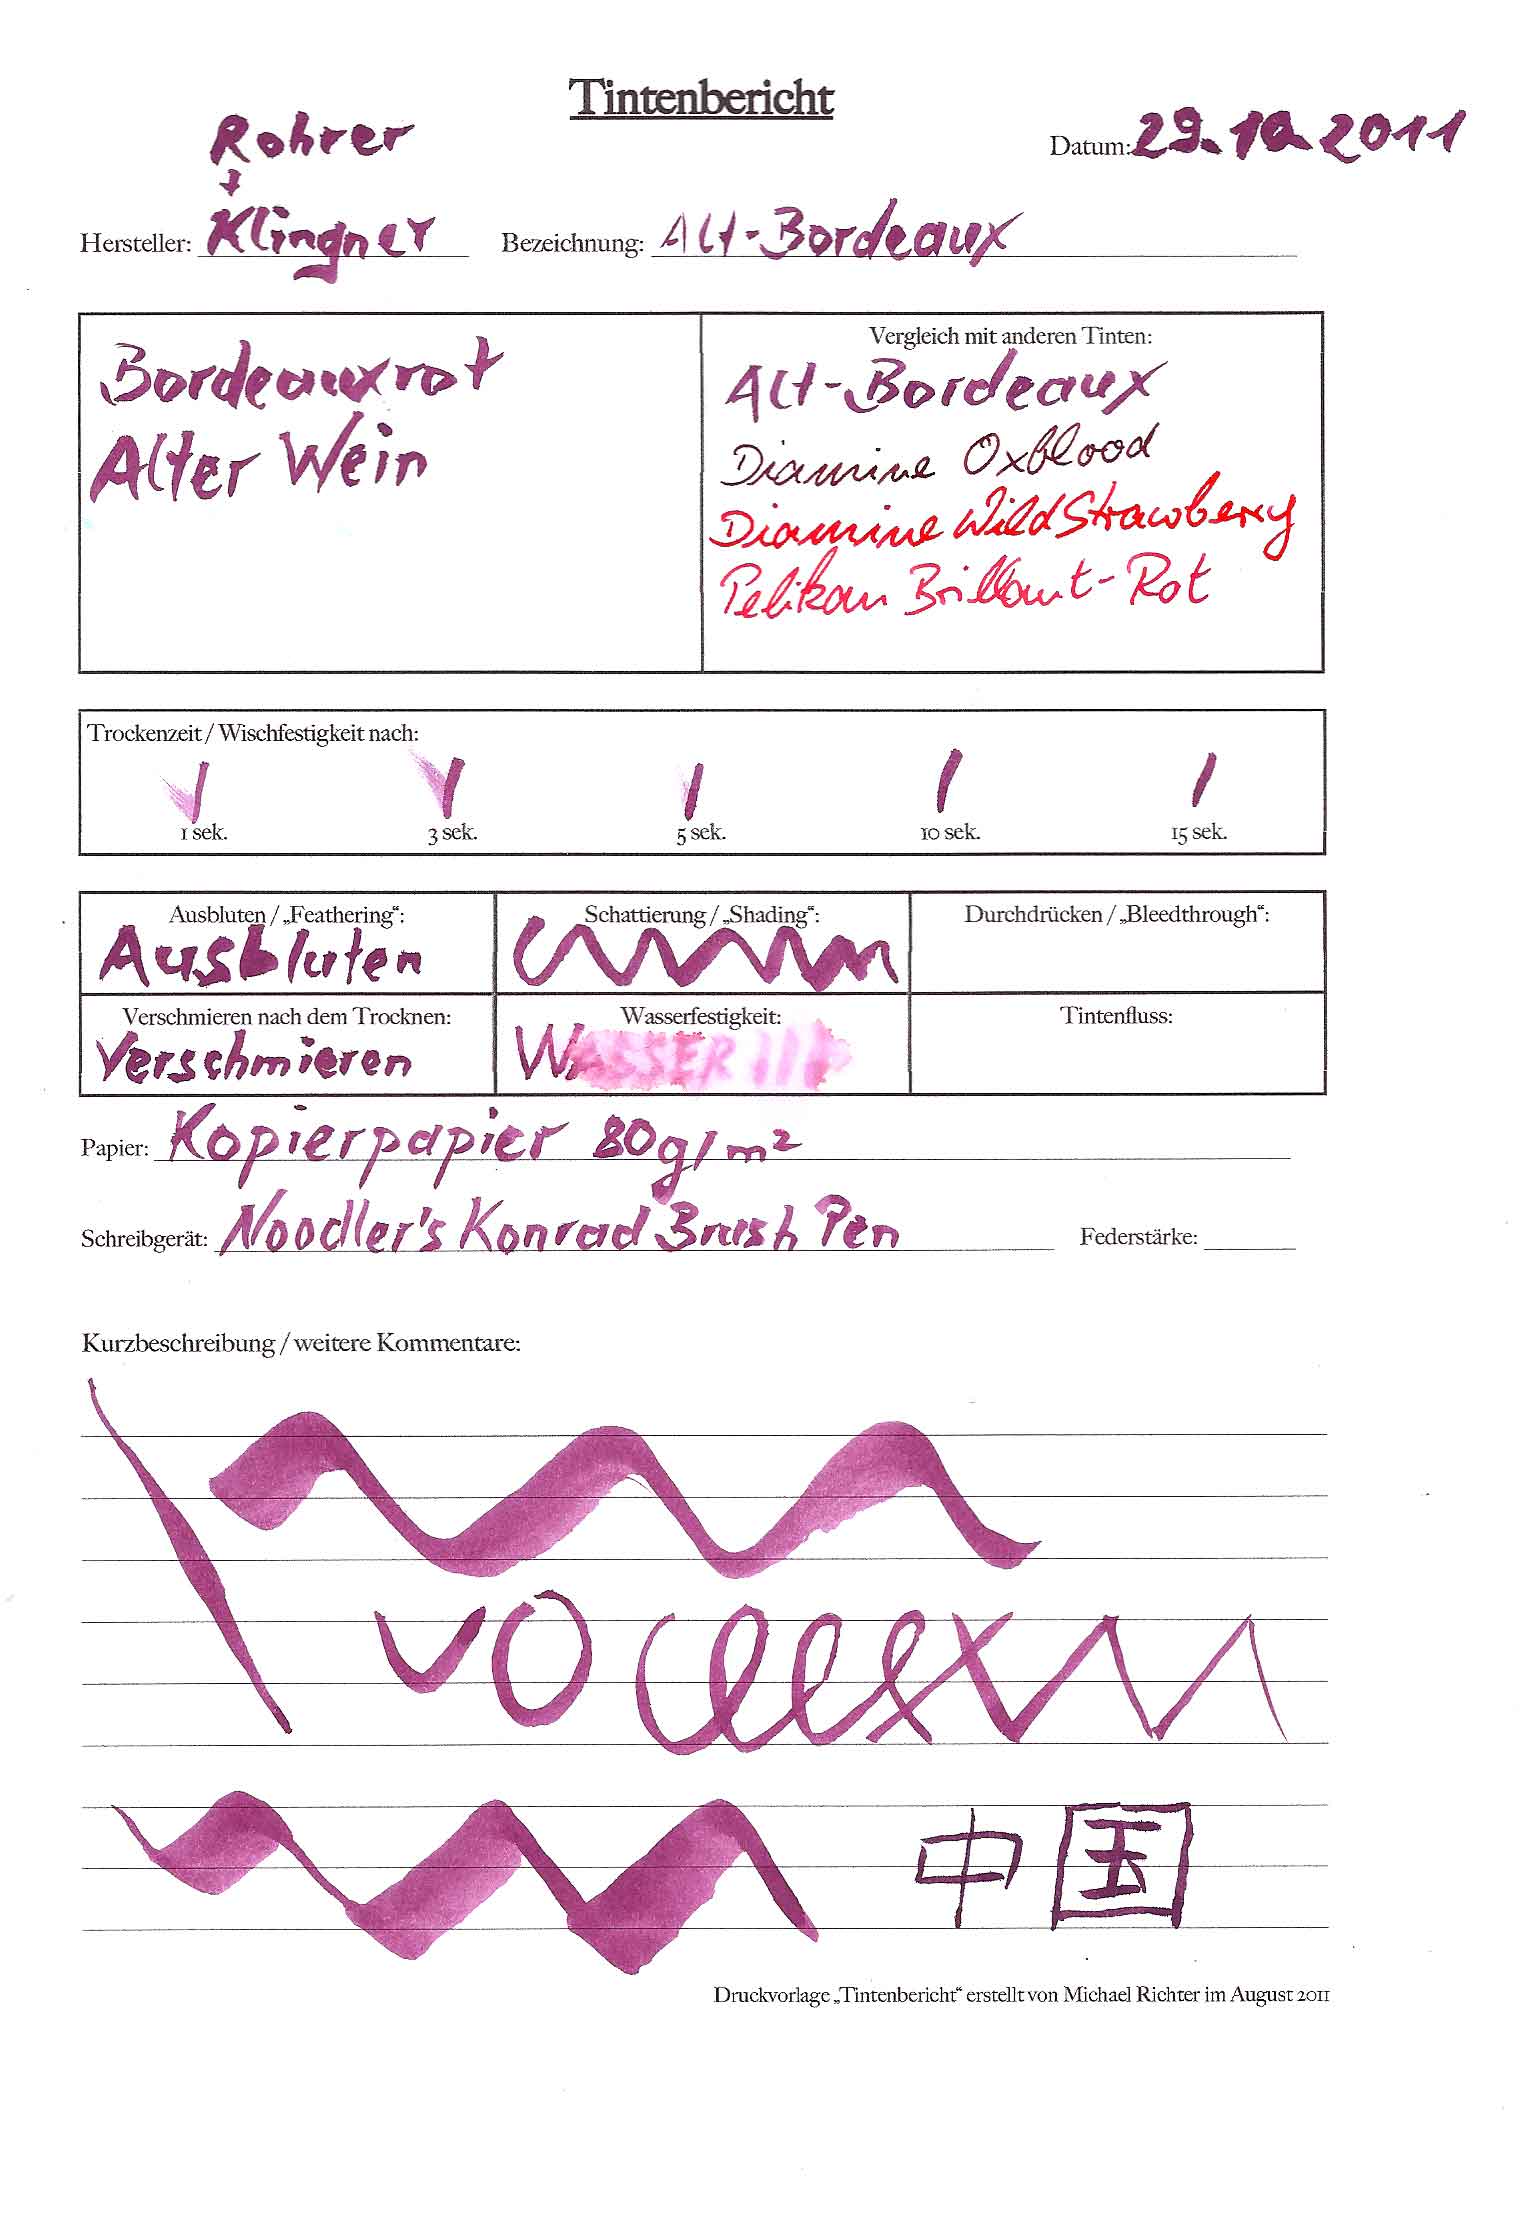 Tintenbericht
Rohrer
+
Datum: 29.10.2011
Hersteller: Klingner Bezeichnung: Alt-Bordeaux
Bordeauxrot
Alter Wein
Vergleich mit anderen Tinten:
Alt-Bordeaux
Diamine Oxblood
Diamine Wild Strawberry
Pelikan Brillant-Rot
Trockenzeit / Wischfestigkeit nach:
1 sek. 3 sek. 5 sek. 10 sek. 15 sek.
Ausbluten / „Feathering“: Schattierung / „Shading“: Durchdrücken / „Bleedthrough“:
Ausbluten
Verschmieren nach dem Trocknen: Wasserfestigkeit: Tintenfluss:
Verschmieren WASSER
Papier: Kopierpapier 80g/m²
Schreibgerät: Noodler's Konrad Brush Pen Federstärke:
Kurzbeschreibung / weitere Kommentare:
中国
Druckvorlage „Tintenbericht“ erstellt von Michael Richter im August 2011